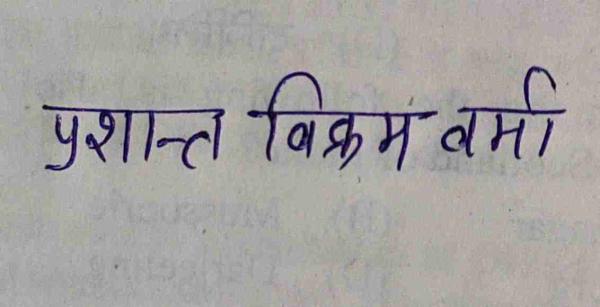 प्रशान्त विक्रम वर्मा